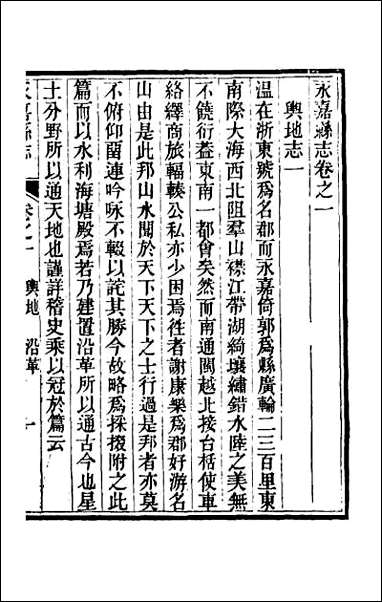 永嘉縣志卷之一
輿地志一
溫在浙東號爲名郡而永嘉倚郭爲縣廣輪二三百里東
南際大海西北阻羣山襟江帶湖綺壤繡錯水陸之美無
不饒衍葢東南一都會矣然而南通閩越北接台栝使車
絡繹商旅輻輳公私亦少困焉徃者謝康樂爲郡好游名
山由是此邦山水聞於天下天下之士行過是邦者亦莫
不俯仰畱連吟咏不輟以詫其勝今故略爲採掇附之此
篇而以水利海塘殿焉若乃建置沿革所以通古今也星
土分野所以通天地也謹詳稽史乘以冠於篇云
永嘉縣志
卷之一
輿地 沿革
一